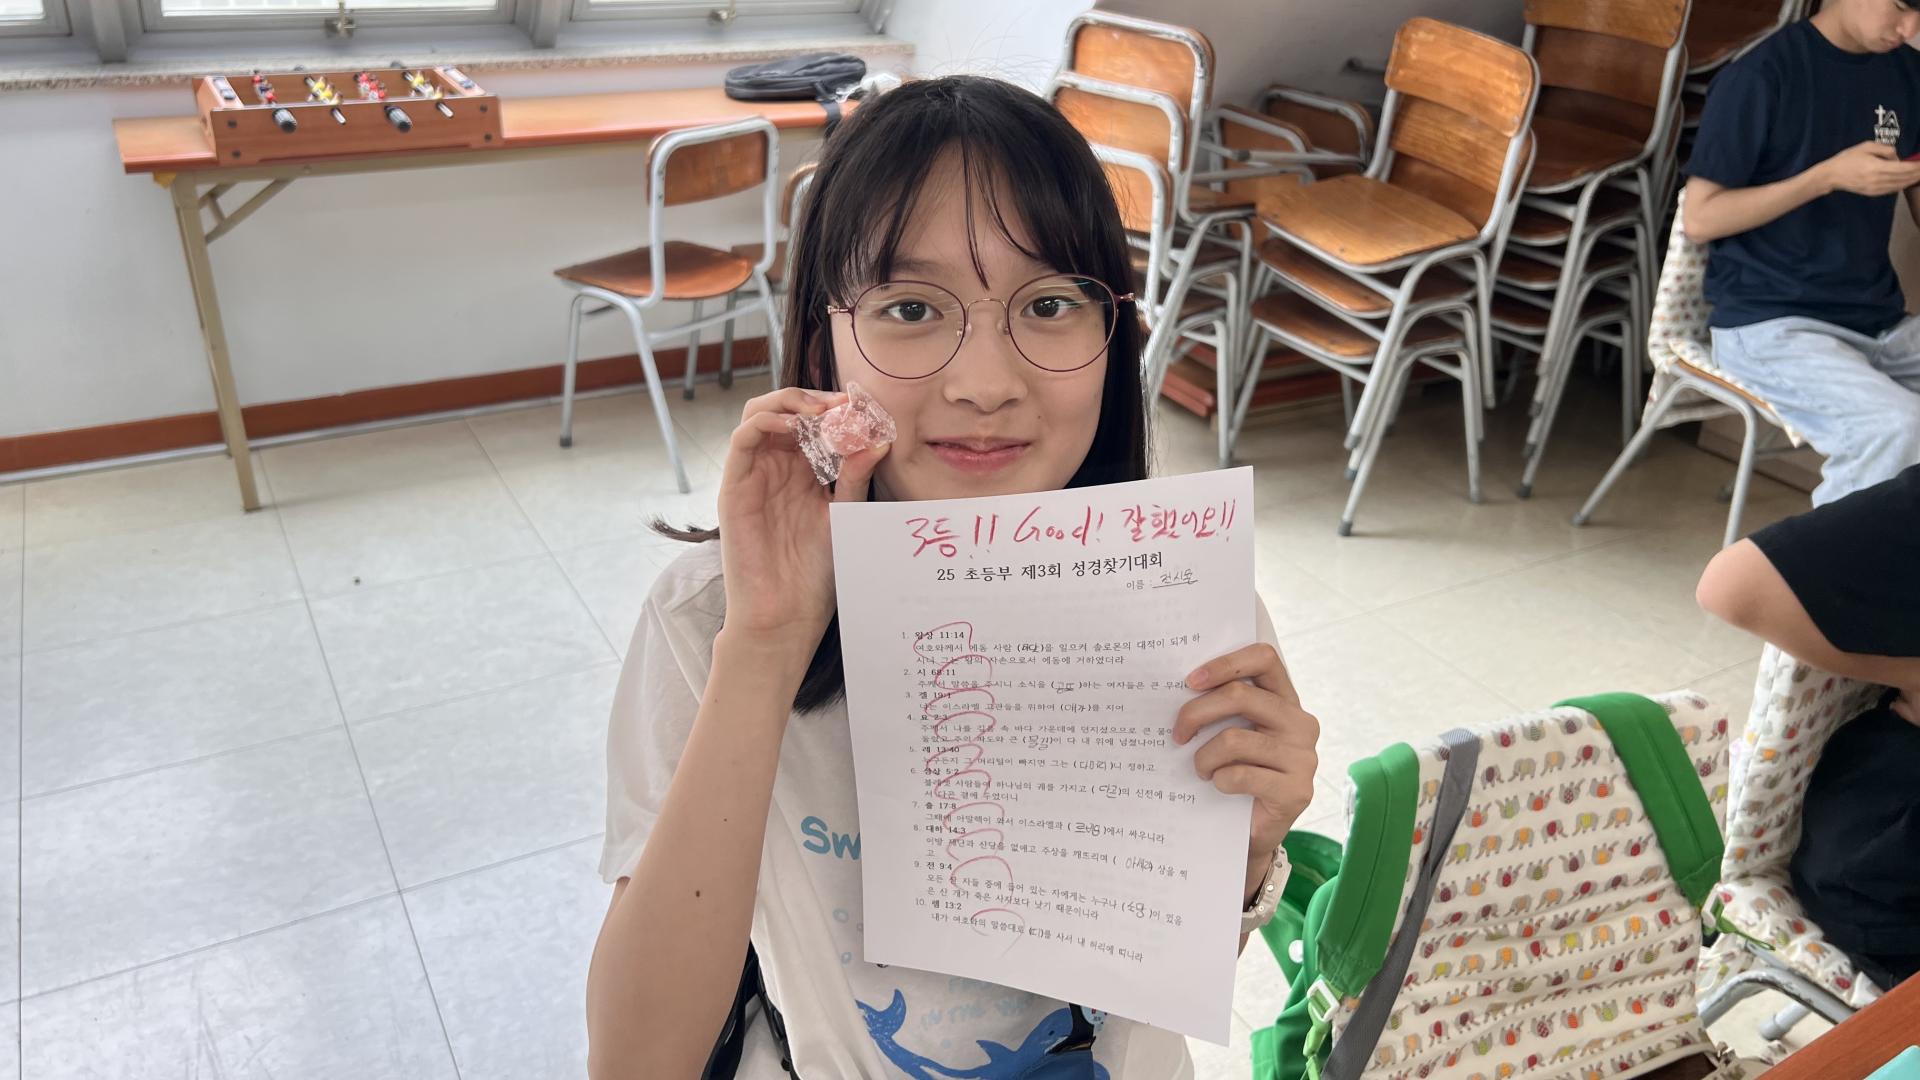 3등!! Good! 잘했어요!!
25 초등부 제3회 성경찾기대회
이름 :
1. 왕상 11:14
여호와께서 에돔 사람 (하닷)을 일으켜 솔로몬의 대적이 되게 하
시니 그는 왕의 자손으로서 에돔에 거하였더라
2. 시 68:11
주께서 말씀을 주시니 소식을 (공포)하는 여자들은 큰 무리
3. 겔 19:1
너는 이스라엘 고관들을 위하여 (애가)를 지어
4. 욘 2:3
주께서 나를 깊음 속 바다 가운데에 던지셨으므로 큰 물이
둘렀고 주의 파도와 큰 (물결)이 다 내 위에 넘쳤나이다
5. 레 13:40
누구든지 그 머리털이 빠지면 그는 (대머리)니 정하고
6. 삼상 5:2
블레셋 사람들이 하나님의 궤를 가지고 (다곤)의 신전에 들어가
서 다곤 곁에 두었더니
7. 출 17:8
그때에 아말렉이 와서 이스라엘과 (르비딤)에서 싸우니라
8. 대하 14:3
이방 제단과 산당을 없애고 주상을 깨뜨리며 (아세라) 상을 찍
고
9. 전 9:4
모든 산 자들 중에 들어 있는 자에게는 누구나 (소망)이 있음
은 산 개가 죽은 사자보다 낫기 때문이니라
10. 렘 13:2
내가 여호와의 말씀대로 (띠)를 사서 내 허리에 띠니라
Sw